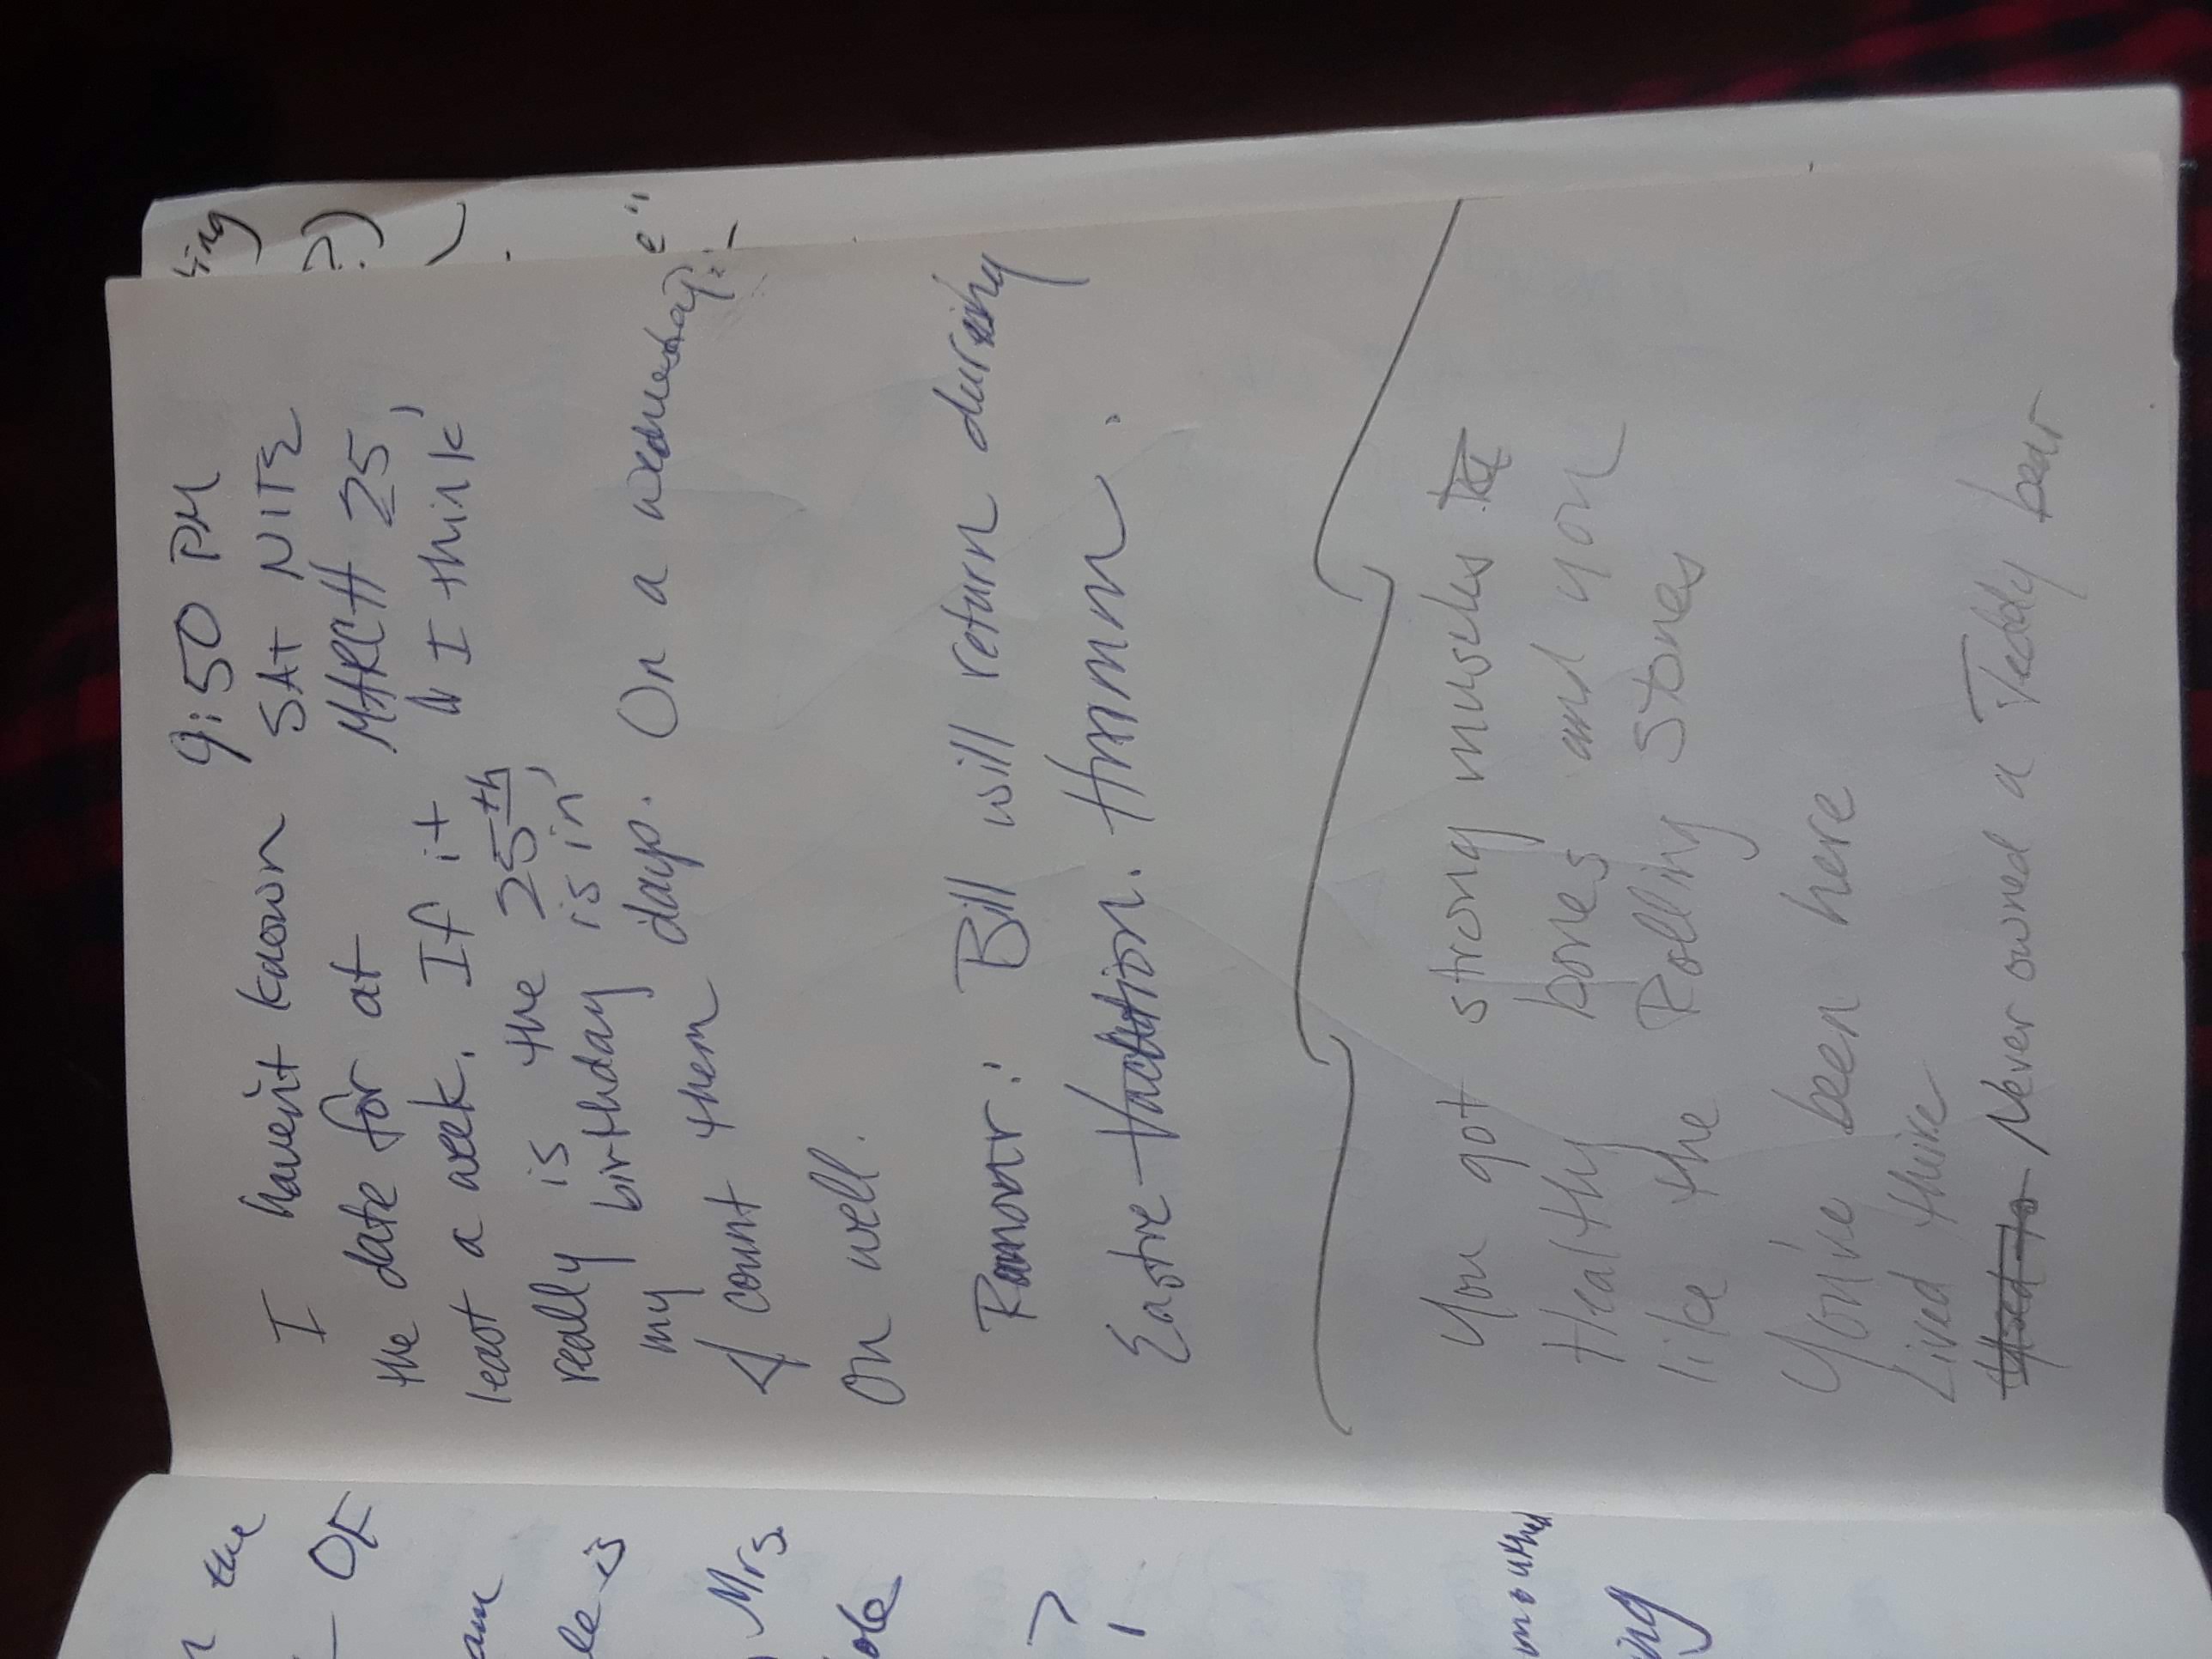 9:50 PM
I haven't known SAt NITE
the date for at MARCH 25,
least a week. If it I think
really is the 25th,
my birthday is in
4 count them days. On a wednesday!
On well.
Rumour: Bill will return during
Eastre Hmmm.
You got strong muscles
Healthy bones and you
like the Rolling Stones
You've been here
Lived there
Used to Never owned a Teddy bear
ing
?)
e"
the
OF
am
is
Mrs.
ole
?
mouthed
ing